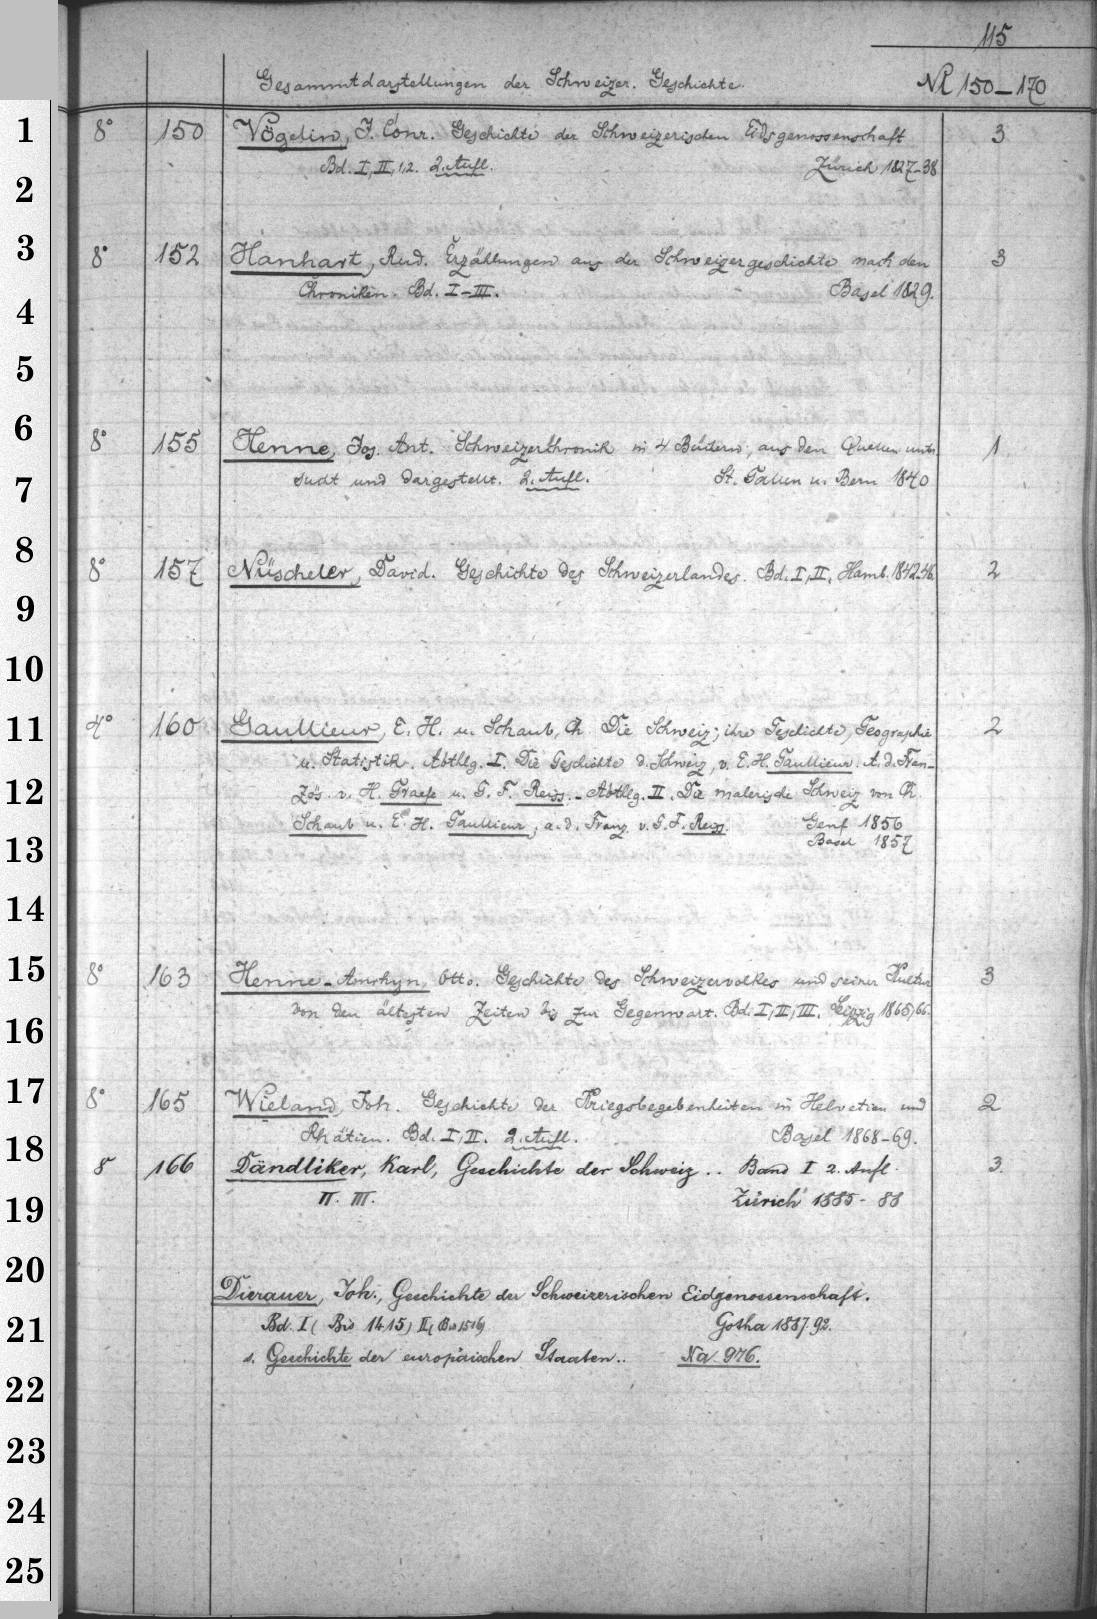 115
Gesammtdarstellungen der Schweizer. Geschichte. Nl 150-170
1 8° 150 Vögelin, J. Conr. Geschichte der Schweizerischen Eidsgenossenschaft 3
Bd. I, II, 1,2. 2. Aufl. Zürich 1827-38
2
3 8° 152 Hanhart, Rud. Erzählungen aus der Schweizergeschichte nach den 3
Chroniken. Bd. I-III. Basel 1829.
4
5
6 8° 155 Henne, Jos. Ant. Schweizerchronik in 4 Büchern, aus den Quellen unter 1
7 sucht und dargestellt. 2. Aufl. St. Gallen u. Bern 1840
8 8° 157 Nüscheler, David. Geschichte des Schweizerlandes. Bd. I, II, Hamb. 1842-46. 2
9
10
11 4° 160 Gaullieur, E. H. u. Schaub, Ch. Die Schweiz; ihre Geschichte, Geographie 2
u. Statistik. Abthlg. I. Die Geschichte d. Schweiz, v. E. H. Gaullieur. A. d. Fran-
12 zös. v. H. Graefe u. G. F. Reiss. - Abthlg. II. Die malerische Schweiz von Ch.
Schaub u. E. H. Gaullieur, a. d. Franz. v. G. F. Reiss. Genf 1856
13 Basel 1857
14
15 8° 163 Henne-Amrhyn, Otto. Geschichte des Schweizervolkes und seiner Kultur 3
von den ältesten Zeiten bis zur Gegenwart. Bd. I, II, III. Leipzig 1865,66.
16
17 8° 165 Wieland, Joh. Geschichte der Kriegsbegebenheiten in Helvetien und 2
Rhätien. Bd. I, II. 2. Aufl. Basel 1868-69.
18 8 166 Dändliker, Karl, Geschichte der Schweiz .. Band I 2. Aufl. 3.
19 II. III. Zürich 1885-88
20 Dierauer, Joh., Geschichte der Schweizerischen Eidgenossenschaft.
21 Bd. I (Bis 1415) II (Bis 1516) Gotha 1887.92.
s. Geschichte der europäischen Staaten.. Na 976.
22
23
24
25